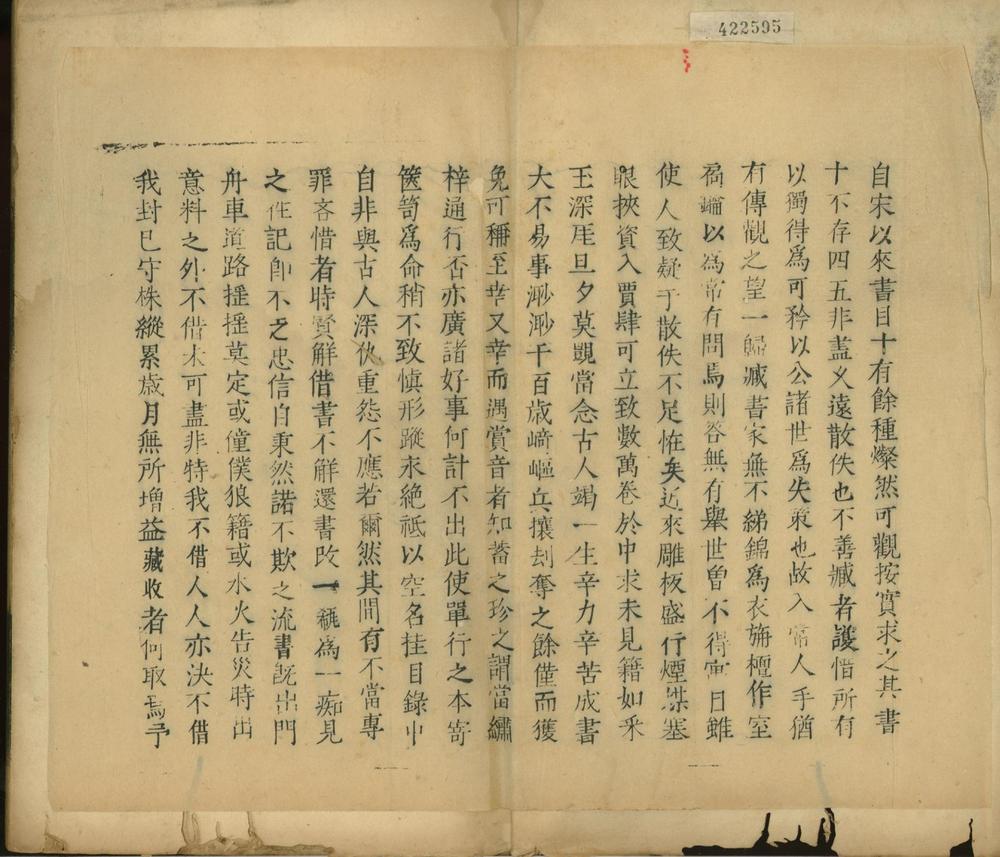 422595
自宋以來書目十有餘種燦然可觀按實求之其書
十不存四五非盡久遠散佚也不善藏者護惜所有
以獨得爲可矜以公諸世爲失策也故入常人手猶
有傳觀之望一歸藏書家無不綈錦爲衣旃檀作室
扃鐍以爲常有問焉則答無有舉世曾不得寓目雖
使人致疑于散佚不足怪矣近來雕板盛行煙煤塞
眼挾資入賈肆可立致數萬卷於中求未見籍如采
玉深厓旦夕莫覬當念古人竭一生辛力辛苦成書
大不易事渺渺千百歲崎嶇兵攘劫奪之餘僅而獲
免可稱至幸又幸而遇賞音者知蓄之珍之謂當繡
梓通行否亦廣諸好事何計不出此使單行之本寄
篋笥爲命稍不致愼形蹤永絕祗以空名挂目錄中
自非與古人深仇重怨不應若爾然其間有不當專
罪吝惜者時賢解借書不解還書改一瓻爲一痴見
之往記即不乏忠信自秉然諾不欺之流書旣出門
舟車道路搖搖莫定或僮僕狼籍或水火告災時出
意料之外不借未可盡非特我不借人人亦決不借
我封已守株縱累歲月無所增益藏收者何取焉予